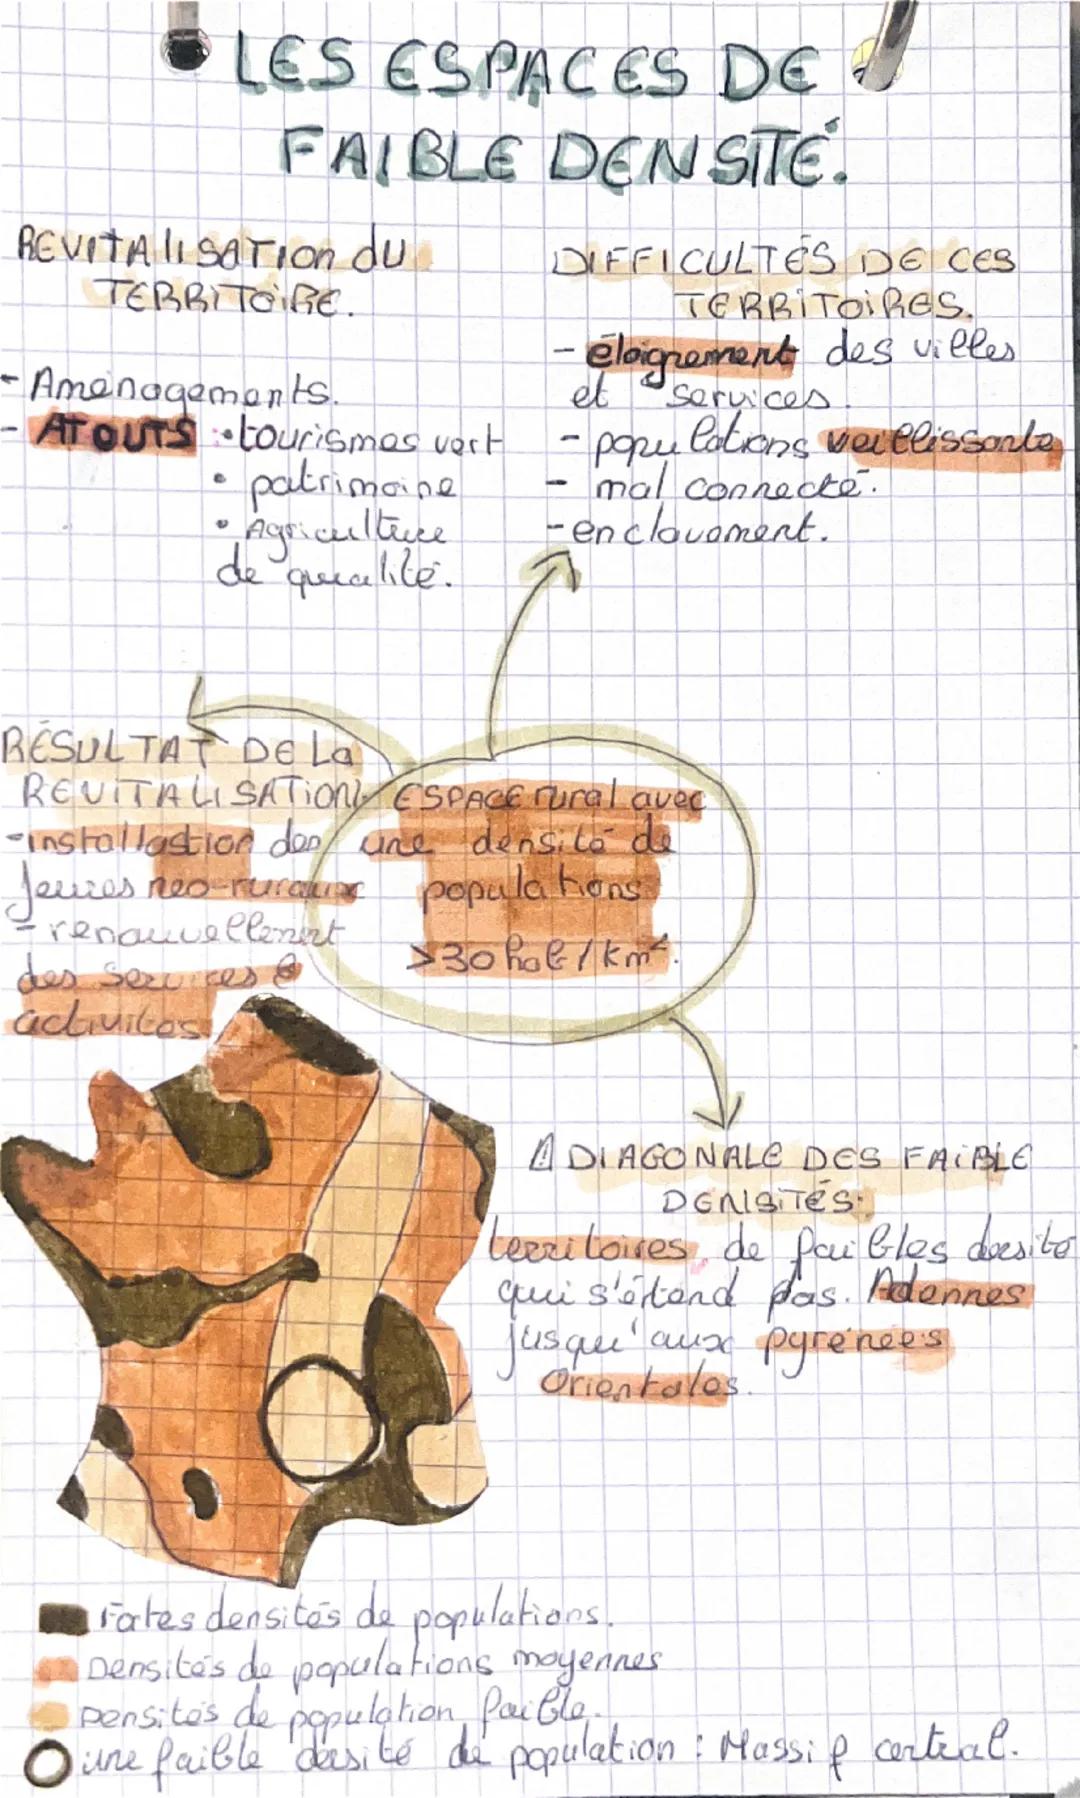 LES ESPACES DE
FAIBLE DENSITÉ.
REVITALISATION du
TERRITOIRE.
- Aménagements.
- ATOUTS : • tourismes vert
• patrimoine
• Agriculture
de qualité.
DIFFICULTÉS DE CES
TERRITOIRES.
- éloignement des villes
et services.
- populations veillissante
- mal connecté.
- enclavement.
RÉSULTAT DE La
REVITALISATION:
- installastion des
jeunes néo-ruraux
- renouvellement
des services &
activités
ESPACE rural avec
une densité de
populations
>30 hab/km².
⚠ DIAGONALE DES FAIBLE
DENSITÉS:
territoires de faibles densité
qui s'étend pas. Adennes
jusqu'aux pyrénées
Orientales.
Fortes densités de populations.
Densités de populations moyennes
Densités de population faible.
une faible densité de population : Massif central.